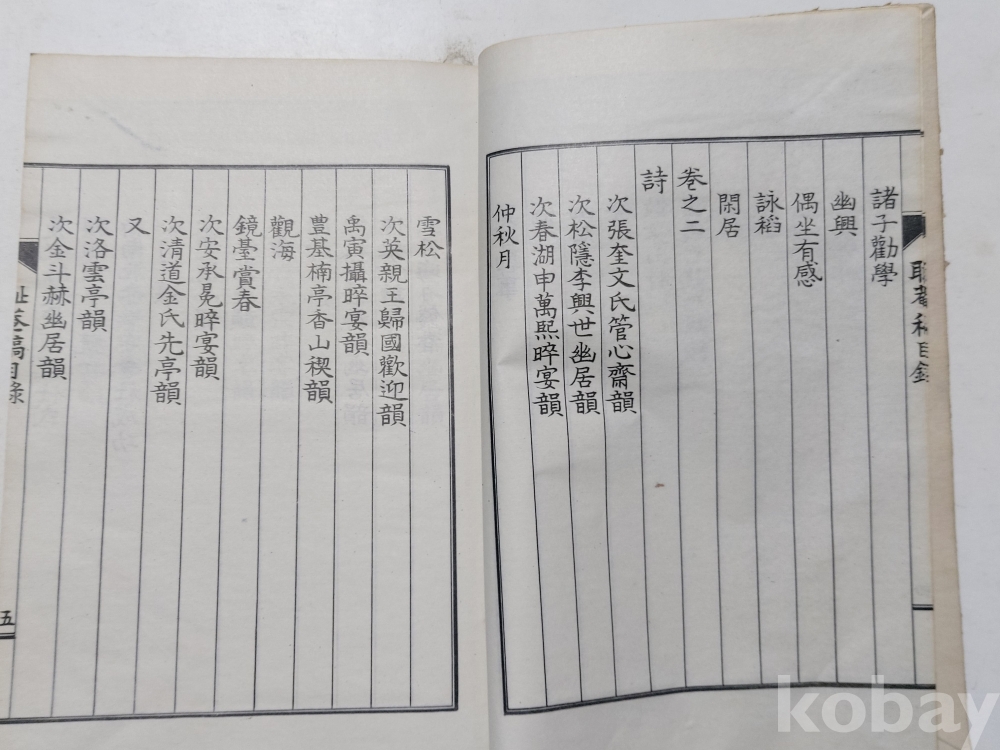 諸子勸學
幽興
偶坐有感
詠稻
閑居
卷之二
詩
次張奎文氏管心齋韻
次松隱李興世幽居韻
次春湖申萬熙晬宴韻
仲秋月
雪松
次英親王歸國歡迎韻
禹寅攝晬宴韻
豊基楠亭香山稧韻
觀海
鏡臺賞春
次安承晃晬宴韻
次清道金氏先亭韻
又
次洛雲亭韻
次金斗赫幽居韻
稿目錄
五
kobay